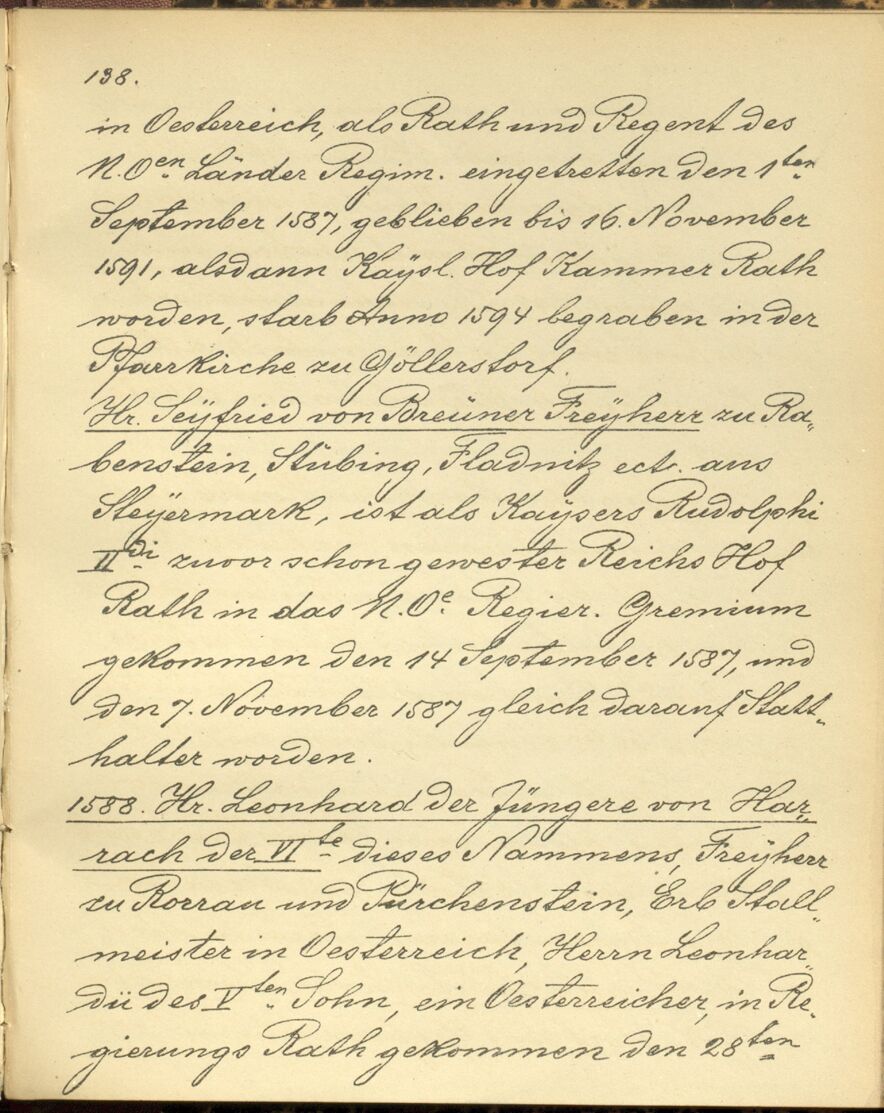 138.
in Oesterreich, als Rath und Regent des
N. Oen. Länder Regim. eingetretten den 1ten
September 1587, geblieben bis 16. November
1591, alsdann Kaÿsl. Hof Kammer Rath
worden, starb Anno 1594 begraben in der
Pfarrkirche zu Göllerstorf.
Hr. Seÿfried von Breüner Freÿherr zu Ra„
benstein, Stübing, Fladnitz ect. aus
Steÿermark, ist als Kaÿsers Rudolphi
IIdi zuvor schon gewester Reichs Hof
Rath in das N. Oe. Regier. Gremium
gekommen den 14 September 1587, und
den 7. November 1587 gleich darauf Statt„
halter worden.
1588. Hr. Leonhard der Jüngere von Har„
rach der VIte dieses Nammens, Freÿherr
zu Rorrau und Pürchenstein, Erb Stall„
meister in Oesterreich, Herrn Leonhar„
dü des Vten Sohn, ein Oesterreicher, in Re„
gierungs Rath gekommen den 28ten